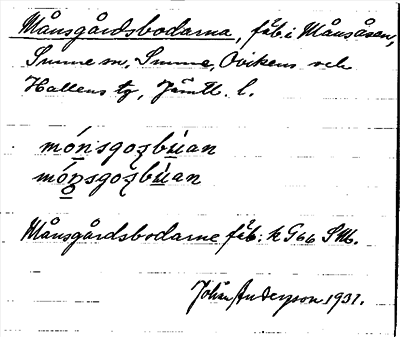 Månsgårdsbodarna, fäb. i Månsåsen,
Sunne sn, Sunne, Ovikens och
Hallens tg, Jämtl. l.
mó̱nsgoʒbú̱an
mó̱n̥sgoʒbú̱an
Månsgårdsbodarne fäb: k G66 SV6.
Johan Anderzon 1931.